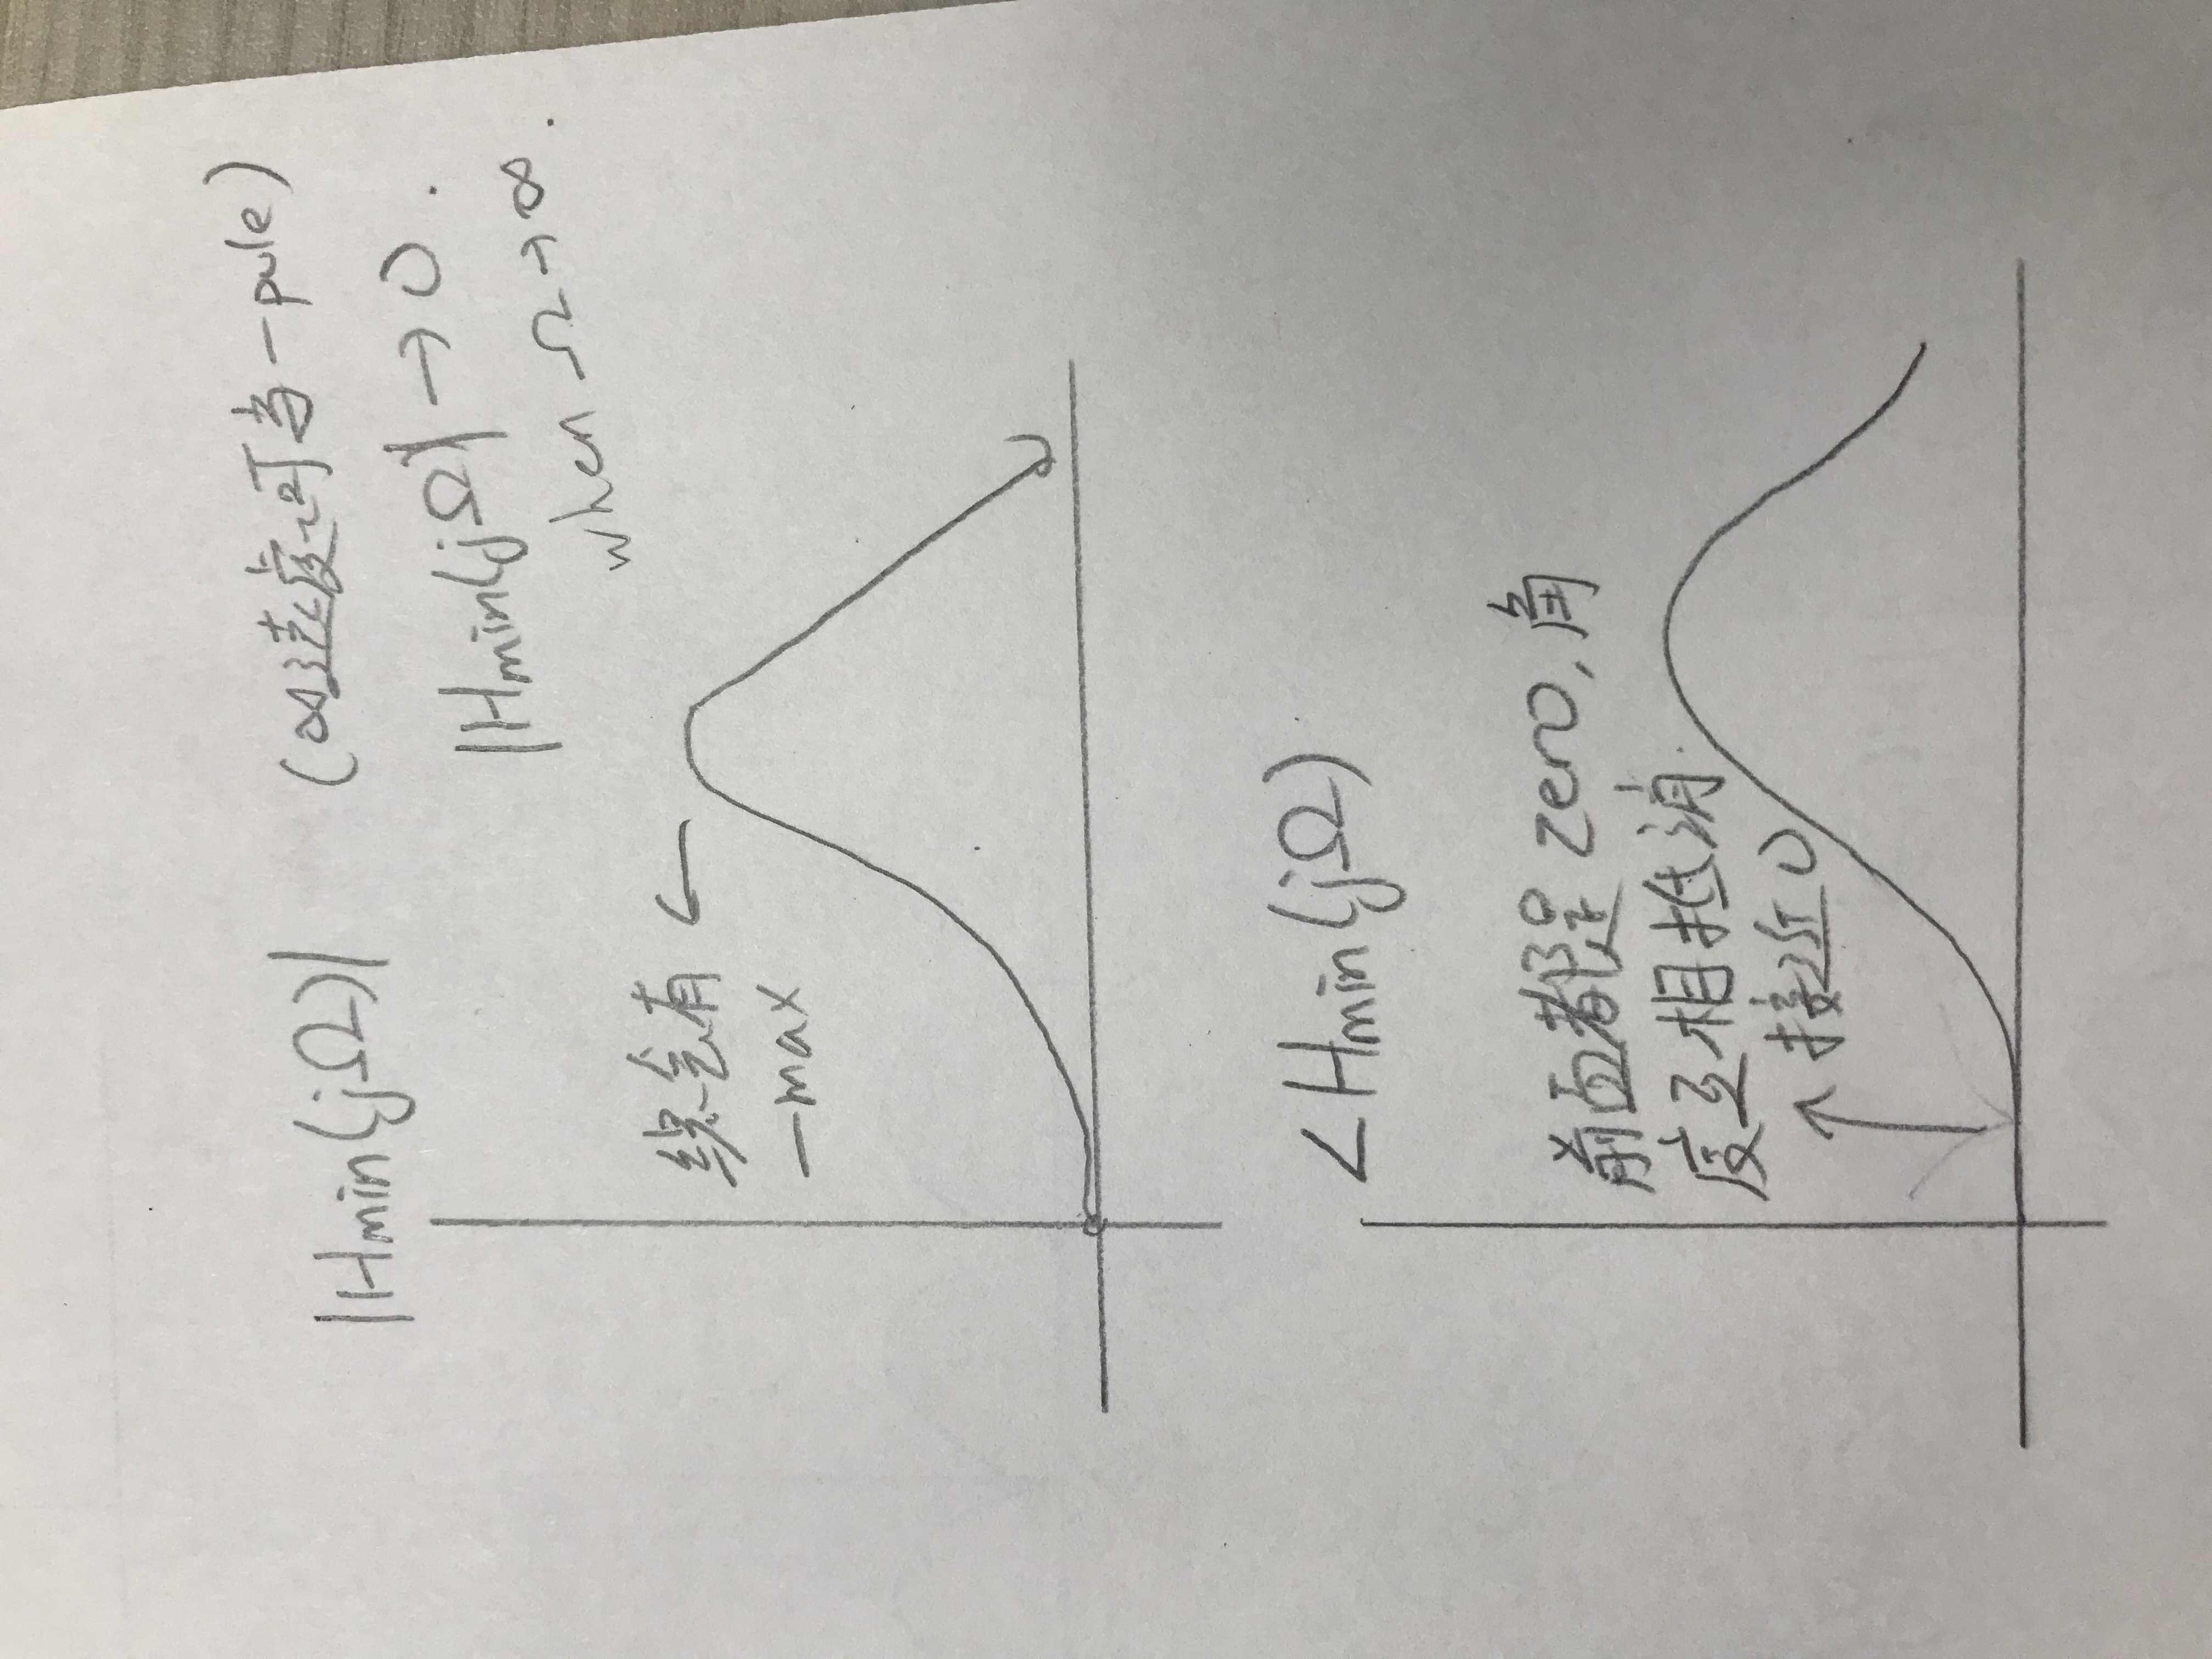 |Hmin(jΩ)|
(∞速度可当一pole)
|Hmin(jΩ)| → 0.
when Ω → ∞.
总会有
一max
∠Hmin(jΩ)
前面都是 zero, 角
度互相抵消
接近0